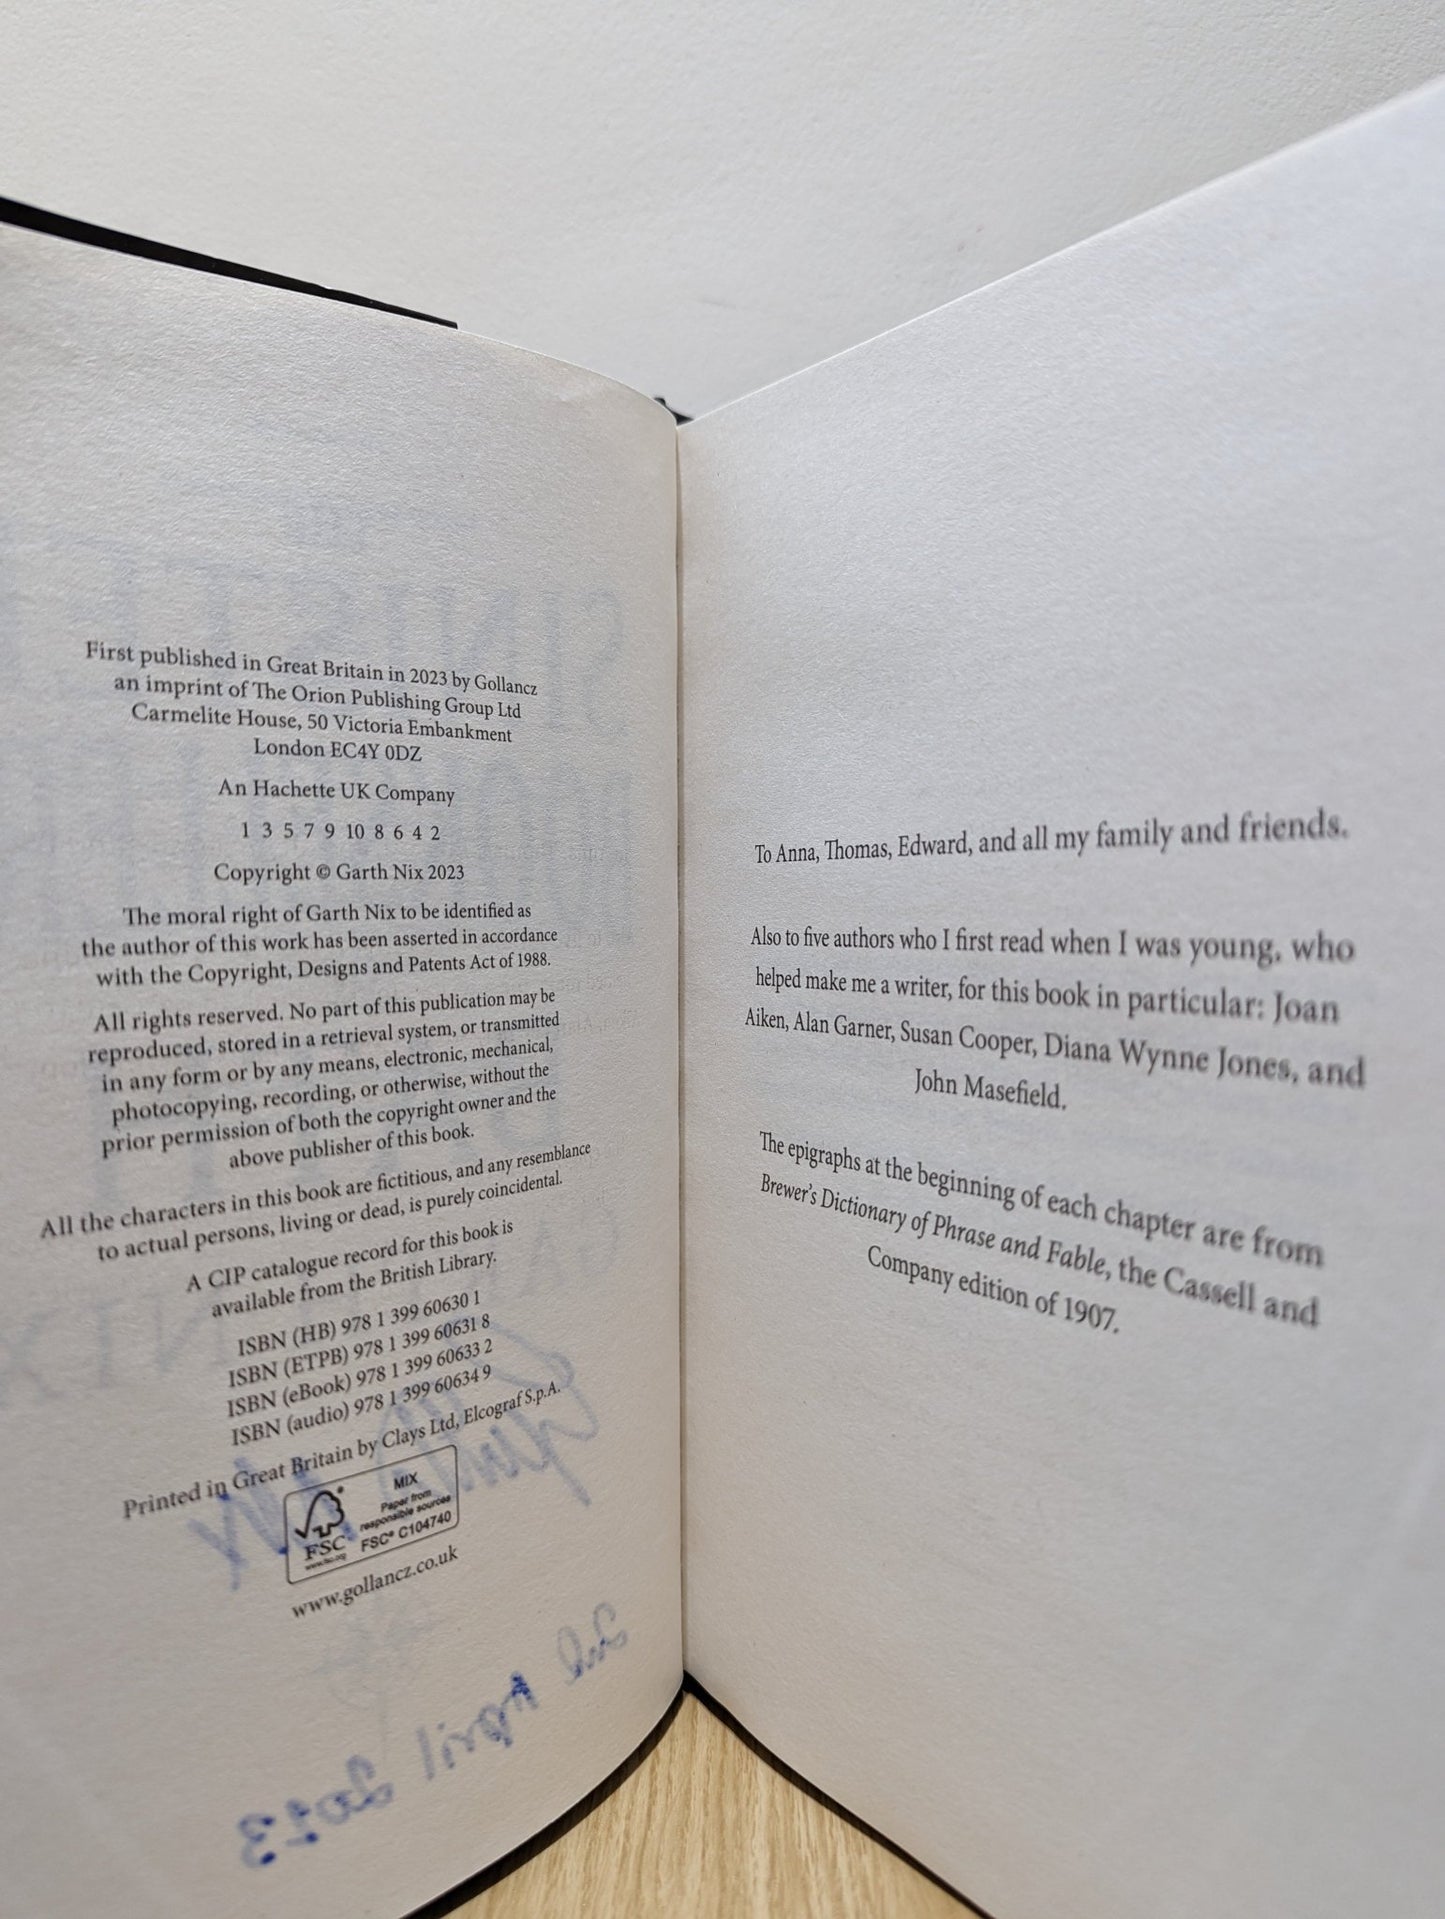 First published in Great Britain in 2023 by Gollancz
an imprint of The Orion Publishing Group Ltd
Carmelite House, 50 Victoria Embankment
London EC4Y 0DZ
An Hachette UK Company
1 3 5 7 9 10 8 6 4 2
Copyright © Garth Nix 2023
The moral right of Garth Nix to be identified as
the author of this work has been asserted in accordance
with the Copyright, Designs and Patents Act of 1988.
All rights reserved. No part of this publication may be
reproduced, stored in a retrieval system, or transmitted
in any form or by any means, electronic, mechanical,
photocopying, recording, or otherwise, without the
prior permission of both the copyright owner and the
above publisher of this book.
All the characters in this book are fictitious, and any resemblance
to actual persons, living or dead, is purely coincidental.
A CIP catalogue record for this book is
available from the British Library.
ISBN (HB) 978 1 399 60630 1
ISBN (ETPB) 978 1 399 60631 8
ISBN (eBook) 978 1 399 60633 2
ISBN (audio) 978 1 399 60634 9
Printed in Great Britain by Clays Ltd, Elcograf S.p.A.
MIX
Paper from
responsible sources
FSC® C104740
FSC
www.fsc.org
www.gollancz.co.uk
April 2023
To Anna, Thomas, Edward, and all my family and friends.
Also to five authors who I first read when I was young, who
helped make me a writer, for this book in particular: Joan
Aiken, Alan Garner, Susan Cooper, Diana Wynne Jones, and
John Masefield.
The epigraphs at the beginning of each chapter are from
Brewer's Dictionary of Phrase and Fable, the Cassell and
Company edition of 1907.